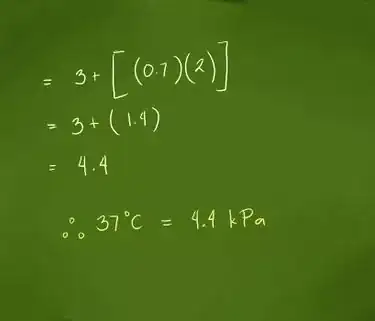 = 3+[(0.7)(2)]
= 3+(1.4)
= 4.4
∴ 37°C = 4.4 kPa